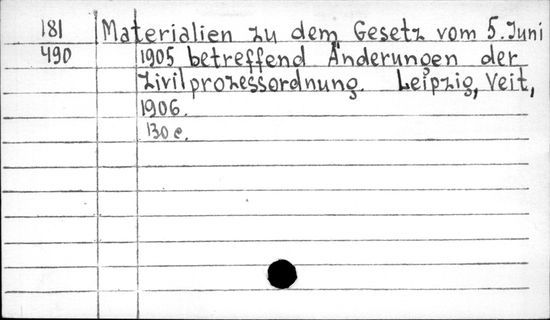 181 Materialien zu dem Gesetz vom 5. Juni
490 1905 betreffend Änderungen der
Zivilprozessordnung. Leipzig, Veit,
1906.
130 c.